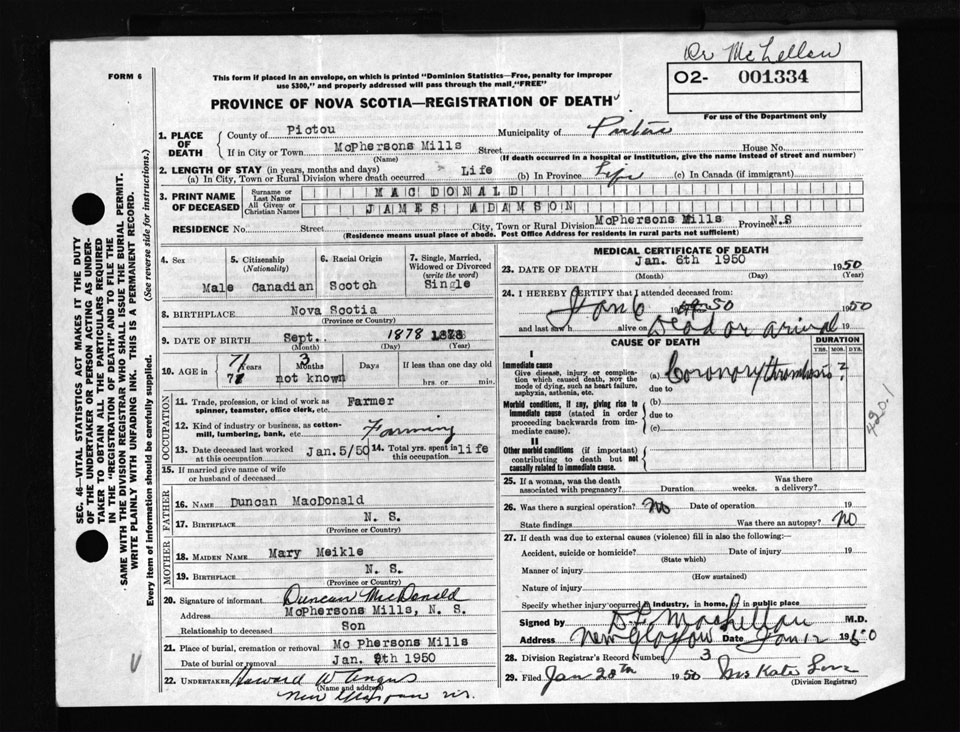 Dr McLellan
FORM 6
This form if placed in an envelope, on which is printed "Dominion Statistics—Free, penalty for improper
use $300," and properly addressed will pass through the mail,"FREE"
O2- 001334
PROVINCE OF NOVA SCOTIA—REGISTRATION OF DEATH
For use of the Department only
1. PLACE OF DEATH
County of Pictou Municipality of Pictou
If in City or Town McPhersons Mills Street House No.
(Name) (If death occurred in a hospital or institution, give the name instead of street and number)
2. LENGTH OF STAY (in years, months and days)
(a) In City, Town or Rural Division where death occurred Life (b) In Province Life (c) In Canada (if immigrant)
3. PRINT NAME OF DECEASED
Surname or Last Name MACDONALD
All Given or Christian Names JAMES ADAMSON
RESIDENCE No. Street City, Town or Rural Division McPhersons Mills Province N.S
(Residence means usual place of abode. Post Office Address for residents in rural parts not sufficient)
4. Sex
5. Citizenship (Nationality)
6. Racial Origin
7. Single, Married, Widowed or Divorced (write the word)
Male Canadian Scotch Single
8. BIRTHPLACE Nova Scotia
(Province or Country)
9. DATE OF BIRTH Sept. 1878 1878
(Month) (Day) (Year)
10. AGE in 71 Years 3 Months Days If less than one day old
not known hrs. or min.
OCCUPATION
11. Trade, profession, or kind of work as spinner, teamster, office clerk, etc. Farmer
12. Kind of industry or business, as cotton-mill, lumbering, bank, etc. Farming
13. Date deceased last worked at this occupation Jan.5/50 14. Total yrs. spent in this occupation life
15. If married give name of wife or husband of deceased
FATHER
16. NAME Duncan MacDonald
17. BIRTHPLACE N. S.
(Province or Country)
MOTHER
18. MAIDEN NAME Mary Meikle
19. BIRTHPLACE N. S.
(Province or Country)
20. Signature of informant Duncan McDonald
Address McPhersons Mills, N. S.
Relationship to deceased Son
21. Place of burial, cremation or removal Mc Phersons Mills
Date of burial or removal Jan. 9th 1950
22. UNDERTAKER Howard W Angus
(Name and address)
New Glasgow N.S.
MEDICAL CERTIFICATE OF DEATH
23. DATE OF DEATH Jan. 6th 1950 1950
(Month) (Day) (Year)
24. I HEREBY CERTIFY that I attended deceased from:
Jan 6 50 1950
and last saw h alive on Dead on arival 19
CAUSE OF DEATH
DURATION
YRS. MOS. DYS.
I
Immediate cause
Give disease, injury or complication which caused death, NOT the mode of dying, such as heart failure, asphyxia, asthenia, etc.
(a) Coronary thrombosis ?
due to
Morbid conditions, if any, giving rise to immediate cause (stated in order proceeding backwards from immediate cause).
(b)
due to
(c)
420.1
II
Other morbid conditions (if important) contributing to death but not causally related to immediate cause.
25. If a woman, was the death associated with pregnancy? Duration weeks. Was there a delivery?
26. Was there a surgical operation? No Date of operation 19
State findings Was there an autopsy? No
27. If death was due to external causes (violence) fill in also the following:—
Accident, suicide or homicide? Date of injury 19
(State which)
Manner of injury
(How sustained)
Nature of injury
Specify whether injury occurred in industry, in home, or in public place
Signed by D.F. MacLellan M.D.
Address New Glasgow Date Jan 12 1950
28. Division Registrar's Record Number 3
29. Filed Jan 20th 1950 Mrs Kate
(Division Registrar)
SEC. 46—VITAL STATISTICS ACT MAKES IT THE DUTY
OF THE UNDERTAKER OR PERSON ACTING AS UNDER-
TAKER TO OBTAIN ALL THE PARTICULARS REQUIRED
IN THE "REGISTRATION OF DEATH" AND TO FILE THE
SAME WITH THE DIVISION REGISTRAR WHO SHALL ISSUE THE BURIAL PERMIT.
WRITE PLAINLY WITH UNFADING INK. THIS IS A PERMANENT RECORD.
Every item of information should be carefully supplied. (See reverse side for instructions.)